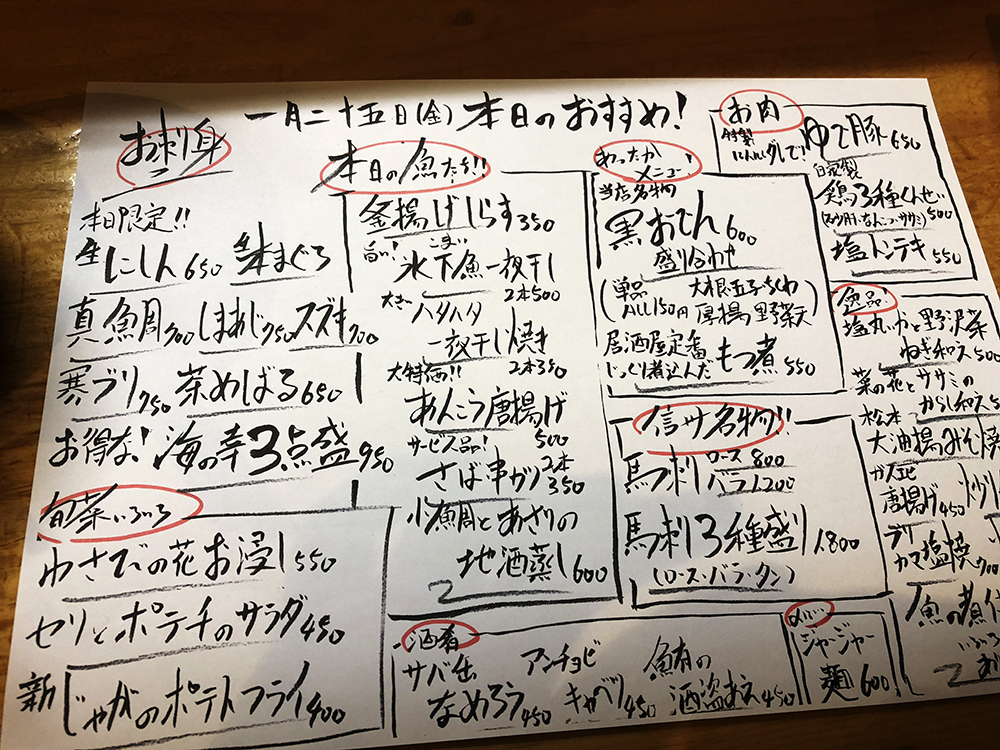 一月二十五日(金)本日のおすすめ!
お刺身
本日限定!!
生にしん650 生本まぐろ
真鯛700 しまあじ750 スズキ700
寒ブリ750 茶めばる650
お得な! 海の幸3点盛950
旬菜いろいろ
わさびの花お浸し550
セリとポテチのサラダ450
新じゃがのポテトフライ400
本日の魚たち!!
釜揚げしらす350
旨い! こまい
氷下魚一夜干し
2本500
大きい ハタハタ
一夜干し焼き
大特価!! 2本350
あんこう唐揚げ
サービス品! 500
さば串カツ2本350
小鯛とあさりの
地酒蒸し600
あったか
メニュー!
当店名物
黒おでん600
盛り合わせ
(単品 大根 玉子 ちくわ
ALL150円 厚揚 野菜天)
居酒屋定番
じっくり煮込んだ もつ煮550
信州名物!!
馬刺 ロース800
バラ1,200
馬刺3種盛り1,800
(ロース・バラ・タン)
酒肴
サバ缶
なめろう450
アンチョビ
キャベツ450
鮪の
酒盗あえ450
ジャージャー
麺600
お肉
特製
にんにくダレで! ゆで豚650
自家製
鶏3種くんせい
500
塩トンテキ550
逸品
塩丸いかと野沢菜
ねぎ和え500
菜の花とササミの
からし和え
松本
大油揚みそ焼
ガん
唐揚げ450
ブリ
カマ塩焼
魚の煮付